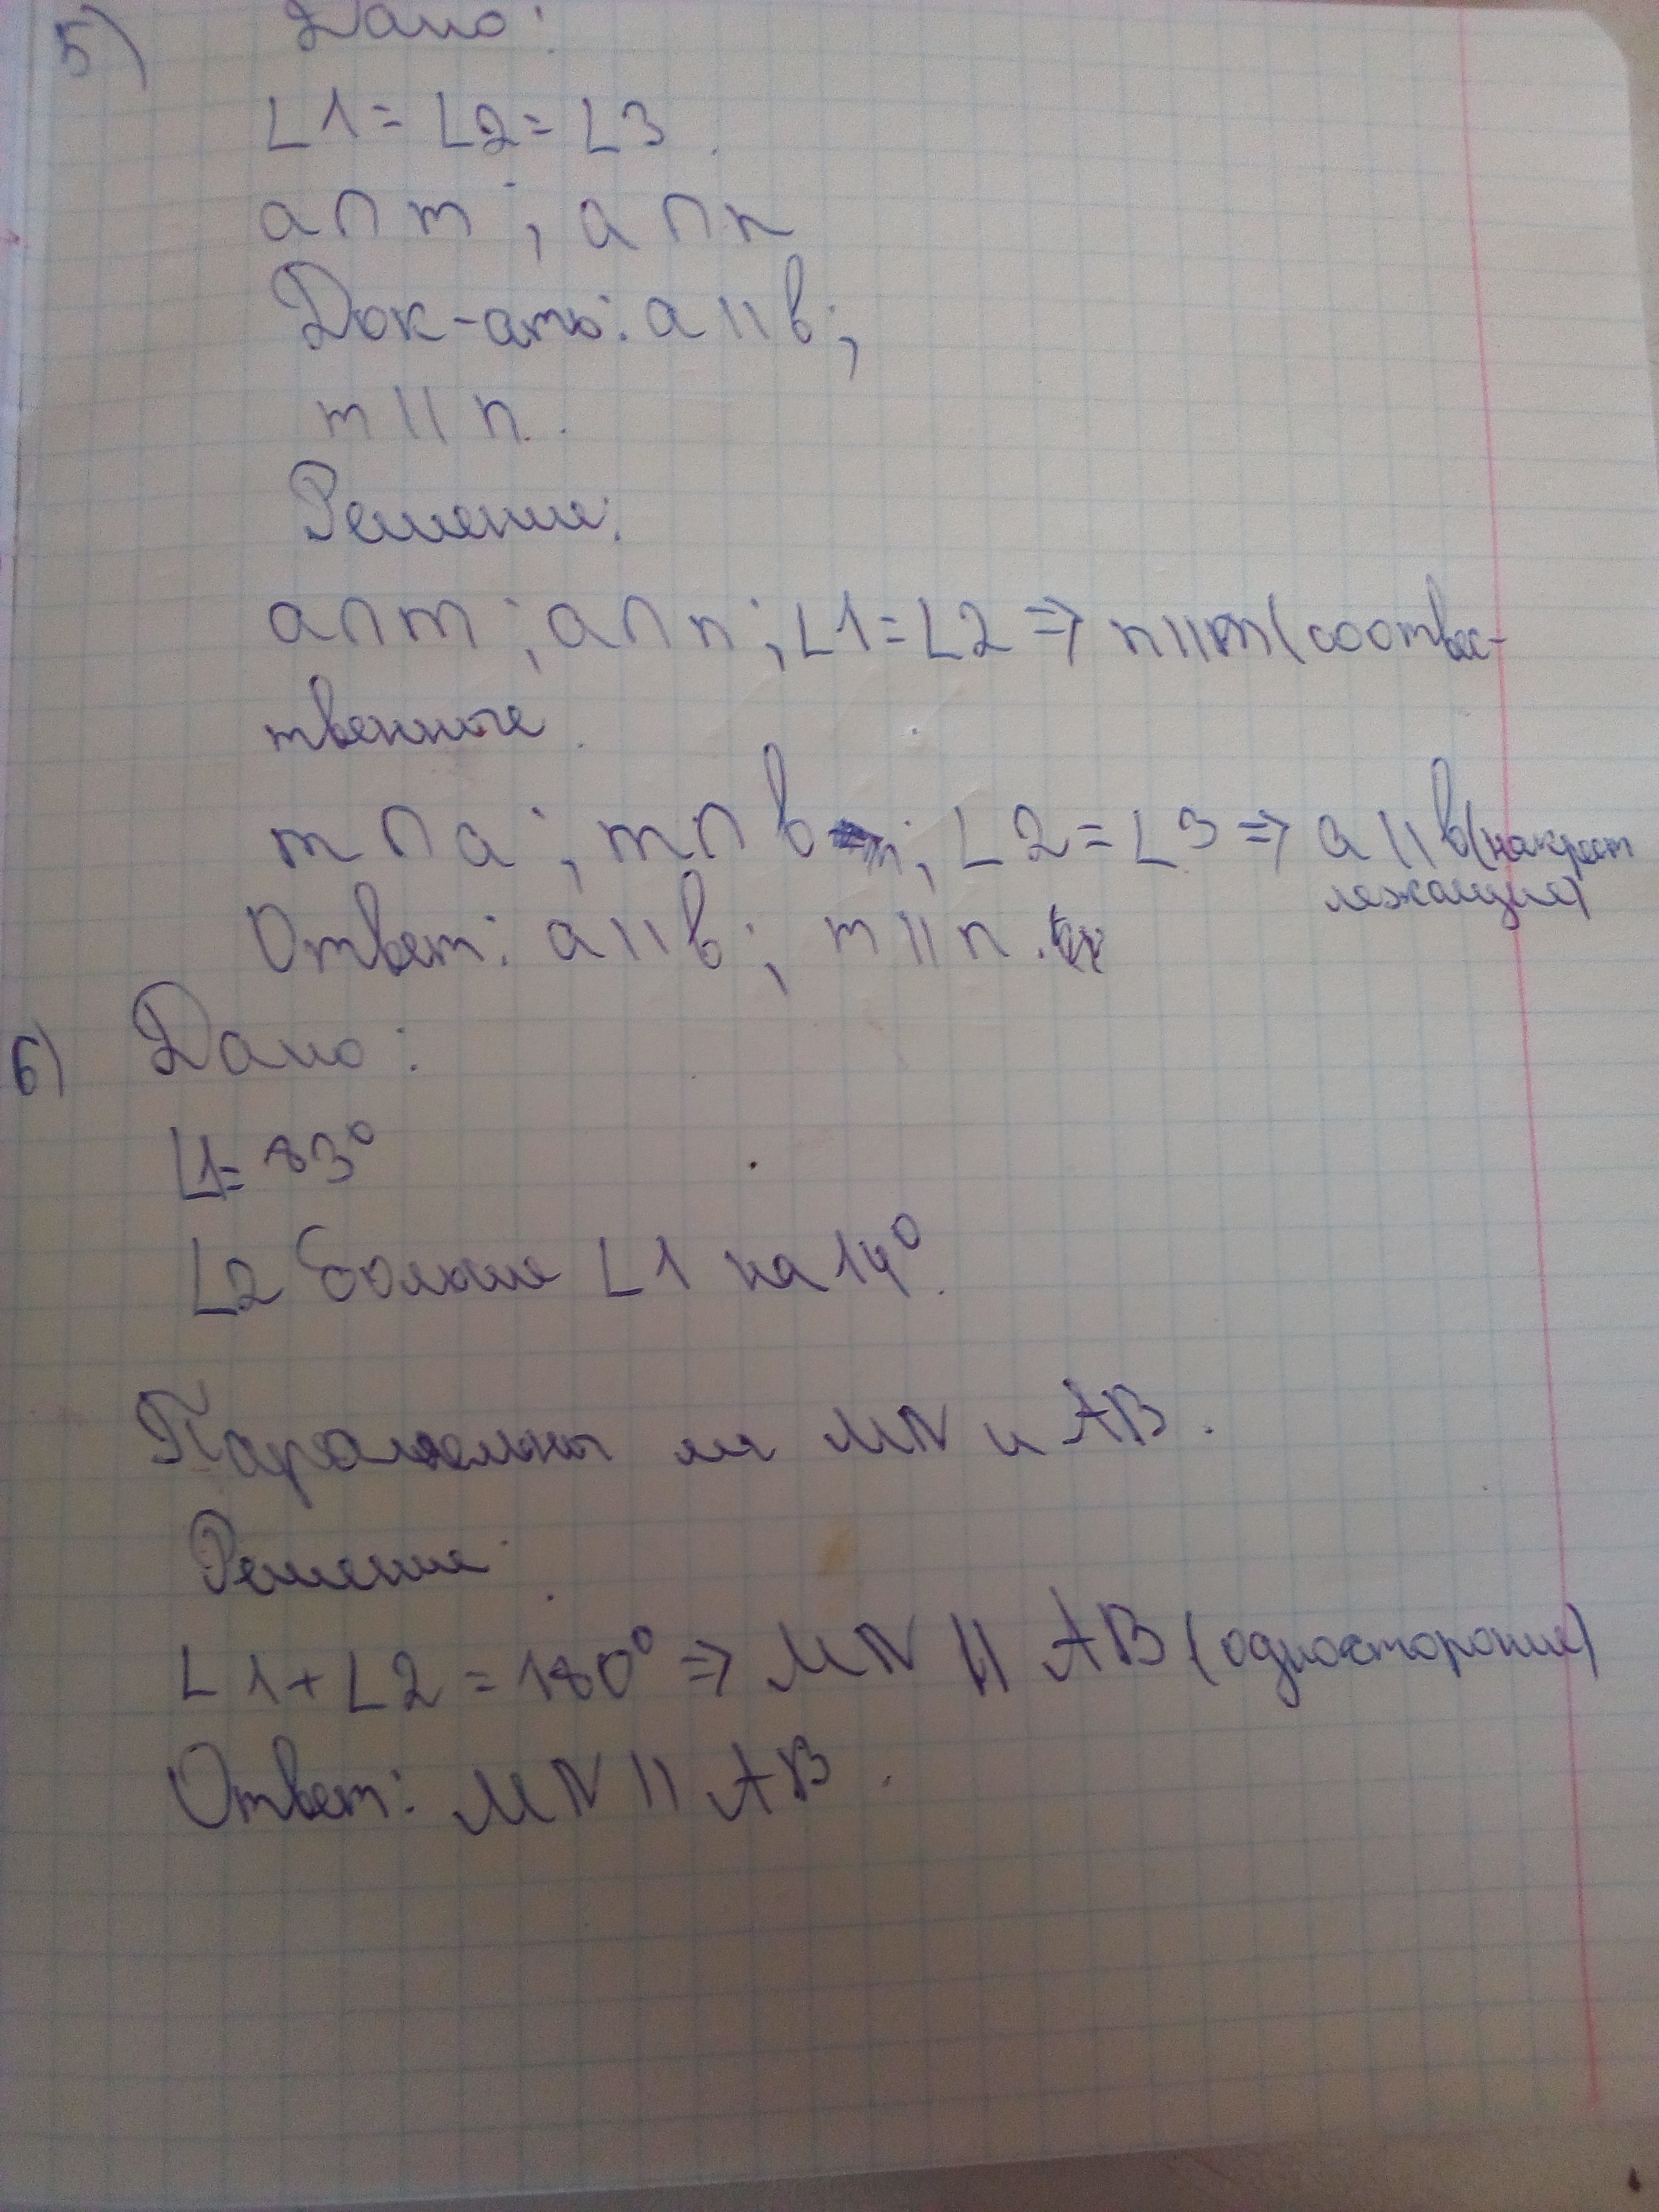 5) Дано:
∟1=∟2=∟3.
a∩m; a∩n
Док-ать: a||b;
m||n.
Решение:
a∩m; a∩n; ∟1=∟2 ⇒ n||m (соответс-
твенные.
m∩a; m∩b; ∟2=∟3 ⇒ a||b (накрест
лежащие)
Ответ: a||b; m||n.
6) Дано:
∟1=83°
∟2 больше ∟1 на 14°.
Параллельны ли MN и AB.
Решение:
∟1+∟2=180° ⇒ MN || AB (односторонние)
Ответ: MN || AB.